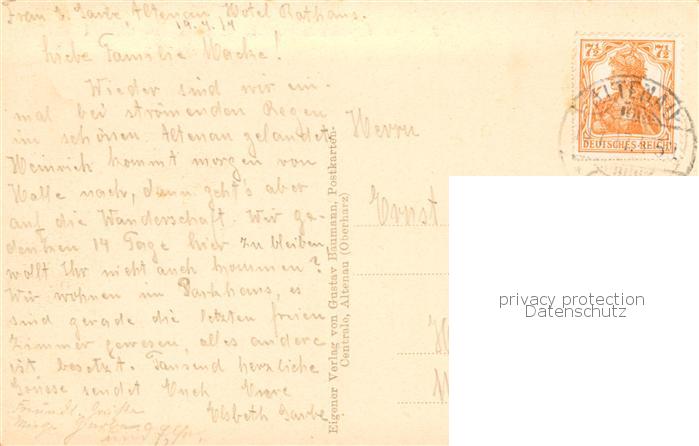 Frau E. Garbe, Altenau, Hotel Rathaus.
Liebe Familie Macke!
Wieder sind wir ein-
mal bei strömenden Regen
im schönen Altenau gelandet
Heinrich kommt morgen von
Halle nach, dann geht's aber
auf die Wanderschaft. Wir ge-
denken 14 Tage hier zu bleiben,
wollt Ihr nicht auch kommen?
Wir wohnen im Parkhaus, es
sind gerade die letzten freien
Zimmer gewesen, alles andere
ist besetzt. Tausend herzliche
Grüsse sendet Euch Eure
Elsbeth Garbe
Freundl. Grüße
Eigener Verlag von Gustav Baumann, Postkarten-
Centrale, Altenau (Oberharz)
Herrn
Ernst
7½ 7½
DEUTSCHES REICH
ALTENAU
HARZ
privacy protection
Datenschutz